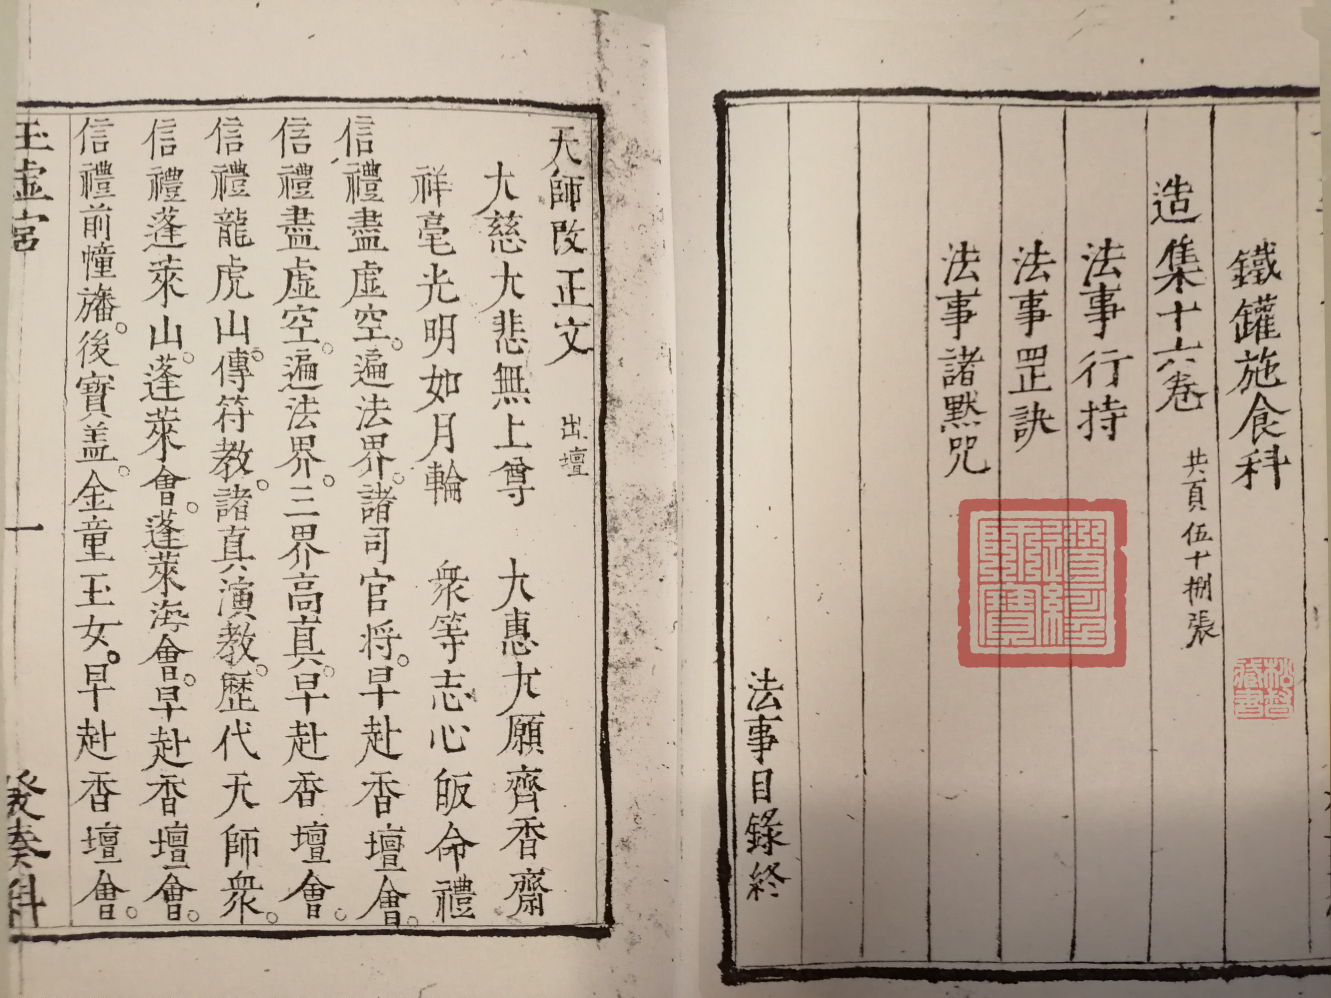 鐵罐施食科
造集十六卷 共頁伍十捌張
法事行持
法事罡訣
法事諸默咒
法事目錄終
道經師寶
松哲藏書
天師改正文 出壇
大慈大悲無上尊 大惠大願齊香齋
祥毫光明如月輪 衆等志心皈命禮
信禮盡虛空。遍法界。諸司官将。早赴香壇會。
信禮盡虛空。遍法界。三界高真。早赴香壇會。
信禮龍虎山。傳符教。諸真演教。歷代天師衆。
信禮蓬萊山。蓬萊會。蓬萊海會。早赴香壇會。
信禮前幢旛。後寶盖。金童玉女。早赴香壇會。
玉虛宮 一 發奏科